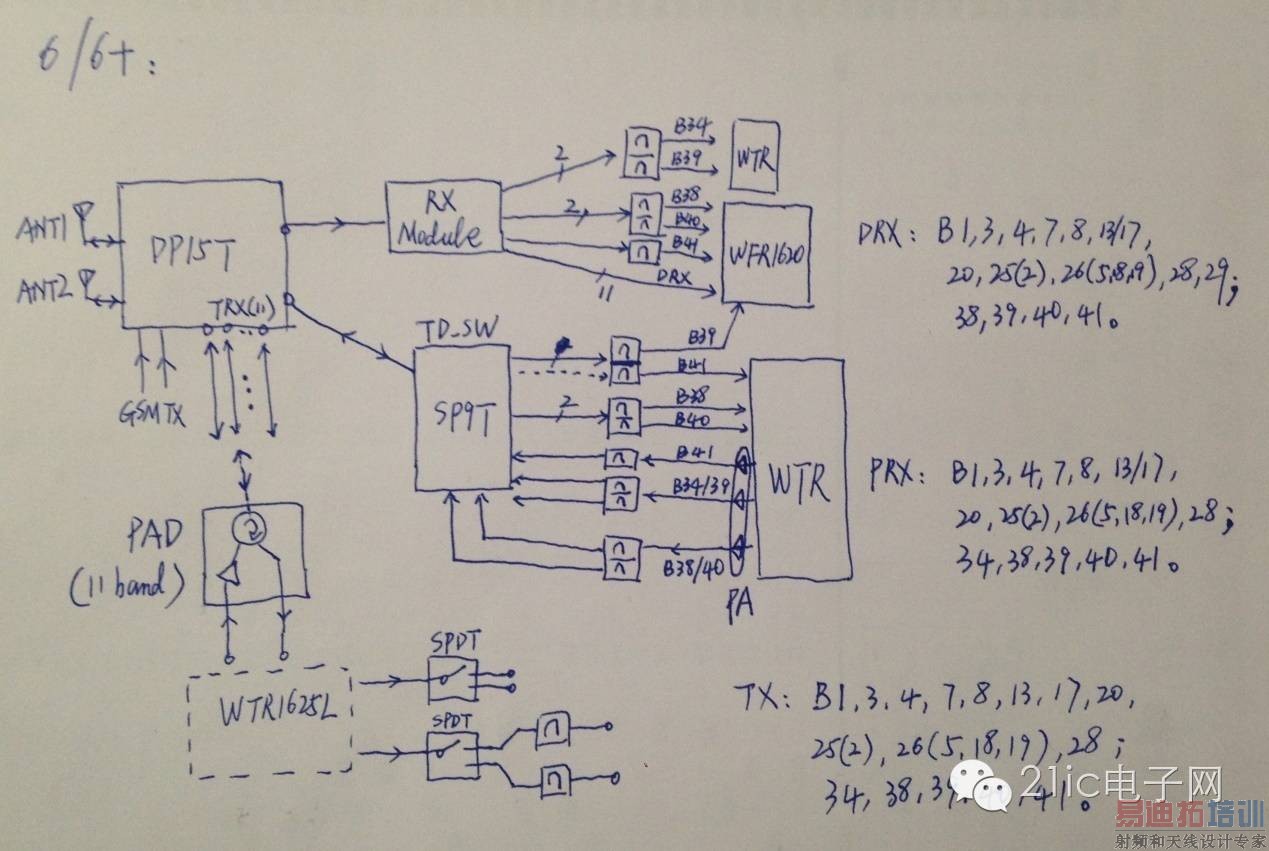 6/6+:
B34
B39
WTR
2
RX
Module
ANT1
DP15T
ANT2
TRX(11)
2
B38
B40
B41
WFR1620
DRX
11
DRX: B1,3,4,7,8,13/17,
20,25(2),26(5,8,9),28,29;
38,39,40,41。
GSMTX
TD_SW
SP9T
B39
B41
2
B38
B40
B41
B34/39
B38/40
WTR
PA
PRX: B1,3,4,7,8,13/17,
20,25(2),26(5,18,19),28;
34,38,39,40,41。
PAD
(11 band)
WTR1625L
SPDT
SPDT
TX: B1,3,4,7,8,13,17,20,
25(2),26(5,18,19),28;
34,38,39,40,41。
21ic电子网
易迪拓培训
射频和天线设计专家